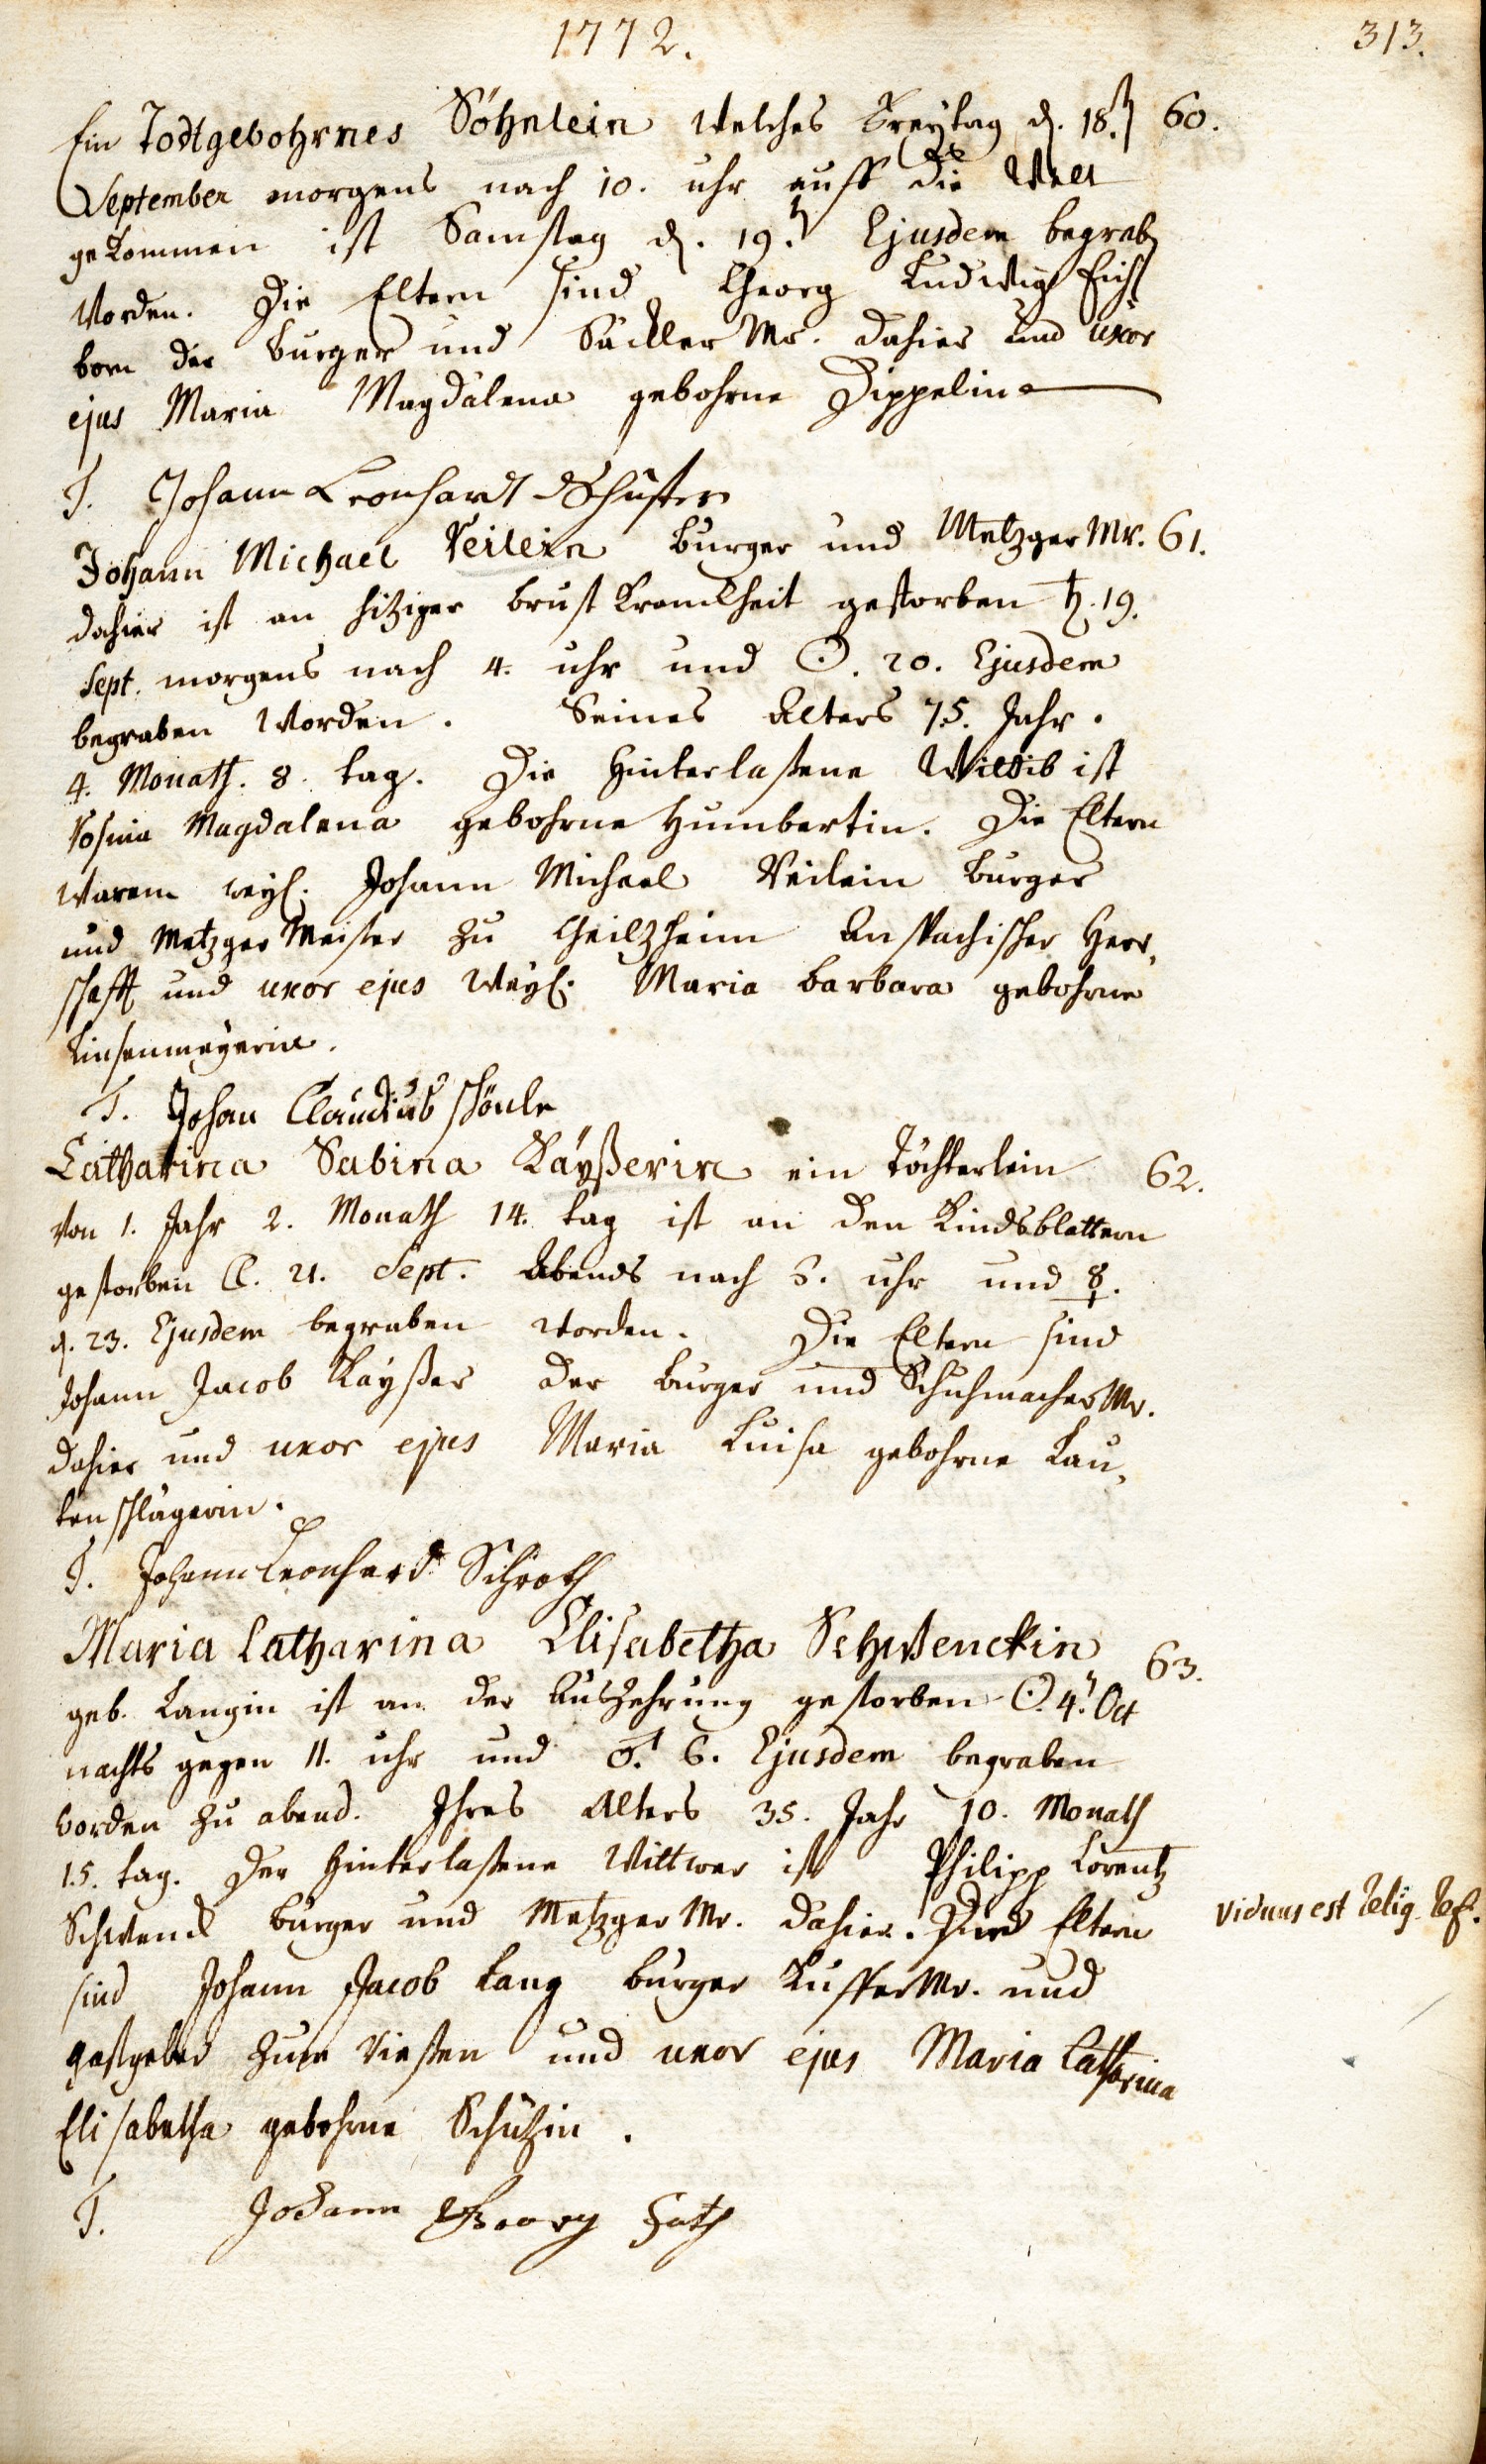 1772.
313.
Ein Todtgebohrnes Söhnlein welches Freytag d. 18.ten 60.
September morgens nach 10. uhr auff die Welt
gekommen ist Samstag d. 19.t Ejusdem begrab
worden. Die Eltern sind Georg Ludwig Eich
born der burger und Säckler Mr. dahier und uxor
ejus Maria Magdalena gebohrne Dippelin
T. Johann Leonhardt Schuster
Johann Michael Veilein burger und Metzger Mr. 61.
dahier ist an hitziger brust Kranckheit gestorben ♄. 19.
Sept. morgens nach 4. uhr und ☉. 20. Ejusdem
begraben worden. Seines Alters 75. Jahr.
4. Monath. 8. tag. Die hinterlaßene Wittib ist
Rosina Magdalena gebohrne Humbertin. Die Eltern
waren weyl. Johann Michael Veilein burger
und Metzger Meister zu Anspachischer Herr,
schafft und uxor ejus weyl. Maria barbara gebohrne
Linsenmeyerin.
T. Johan Claudius schönle
Catharina Sabina Kayßerin ein Töchterlein 62.
von 1. Jahr 2. Monath 14. tag ist an den Kindsblattern
gestorben ☾. 21. Sept. Abends nach uhr und ☿.
d. 23. Ejusdem begraben worden. Die Eltern sind
Johann Jacob Kayßer der burger und Schuhmacher Mr.
dahier und uxor ejus Maria Luisa gebohrne Lau,
tenschlägerin.
T. Johann Leonhard Schroth
Maria Catharina Elisabetha Schwenckin 63.
geb. Langin ist an der Auszehrung gestorben ☉. 4.t Oct
nachts gegen 11. uhr und ♂. 6. Ejusdem begraben
worden zu abend. Ihres Alters 35. Jahr 10. Monath
15. tag. Der hinterlaßene Wittwer ist Philipp Lorentz
Schwenck burger und Metzger Mr. dahier. Eltern
viduus est Relig. Ref.
sind Johann Jacob Lang burger Kuffer Mr. und
gastgeber zum Rießen und uxor ejus Maria Catharina
Elisabetha gebohrne Schützin.
T. Johann Georg Hath